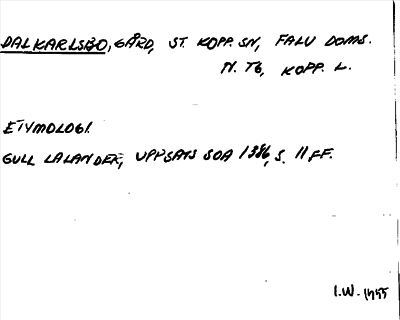 DALKARLSBO, GÅRD, ST. KOPP. SN, FALU DOMS.
N. TG, KOPP. L.
ETYMOLOGI.
GULL LALANDER, UPPSATS SOA 1386, S. 11 FF.
I.W. 1955